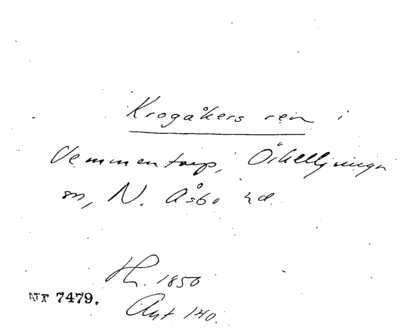 Krogåkers ren i
Vemmentorp, Örkelljunga
sn, N. Åsbo hd.
H. 1850
Nr 7479.
Ant 140.